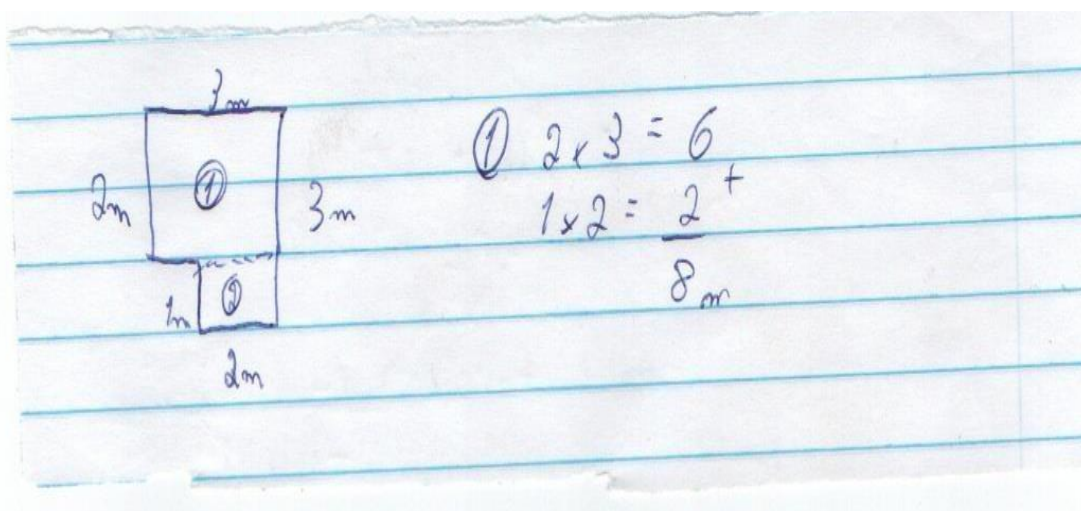 3m
2m ① 3m
1m ②
2m
① 2 x 3 = 6
+
1 x 2 = 2
8 m